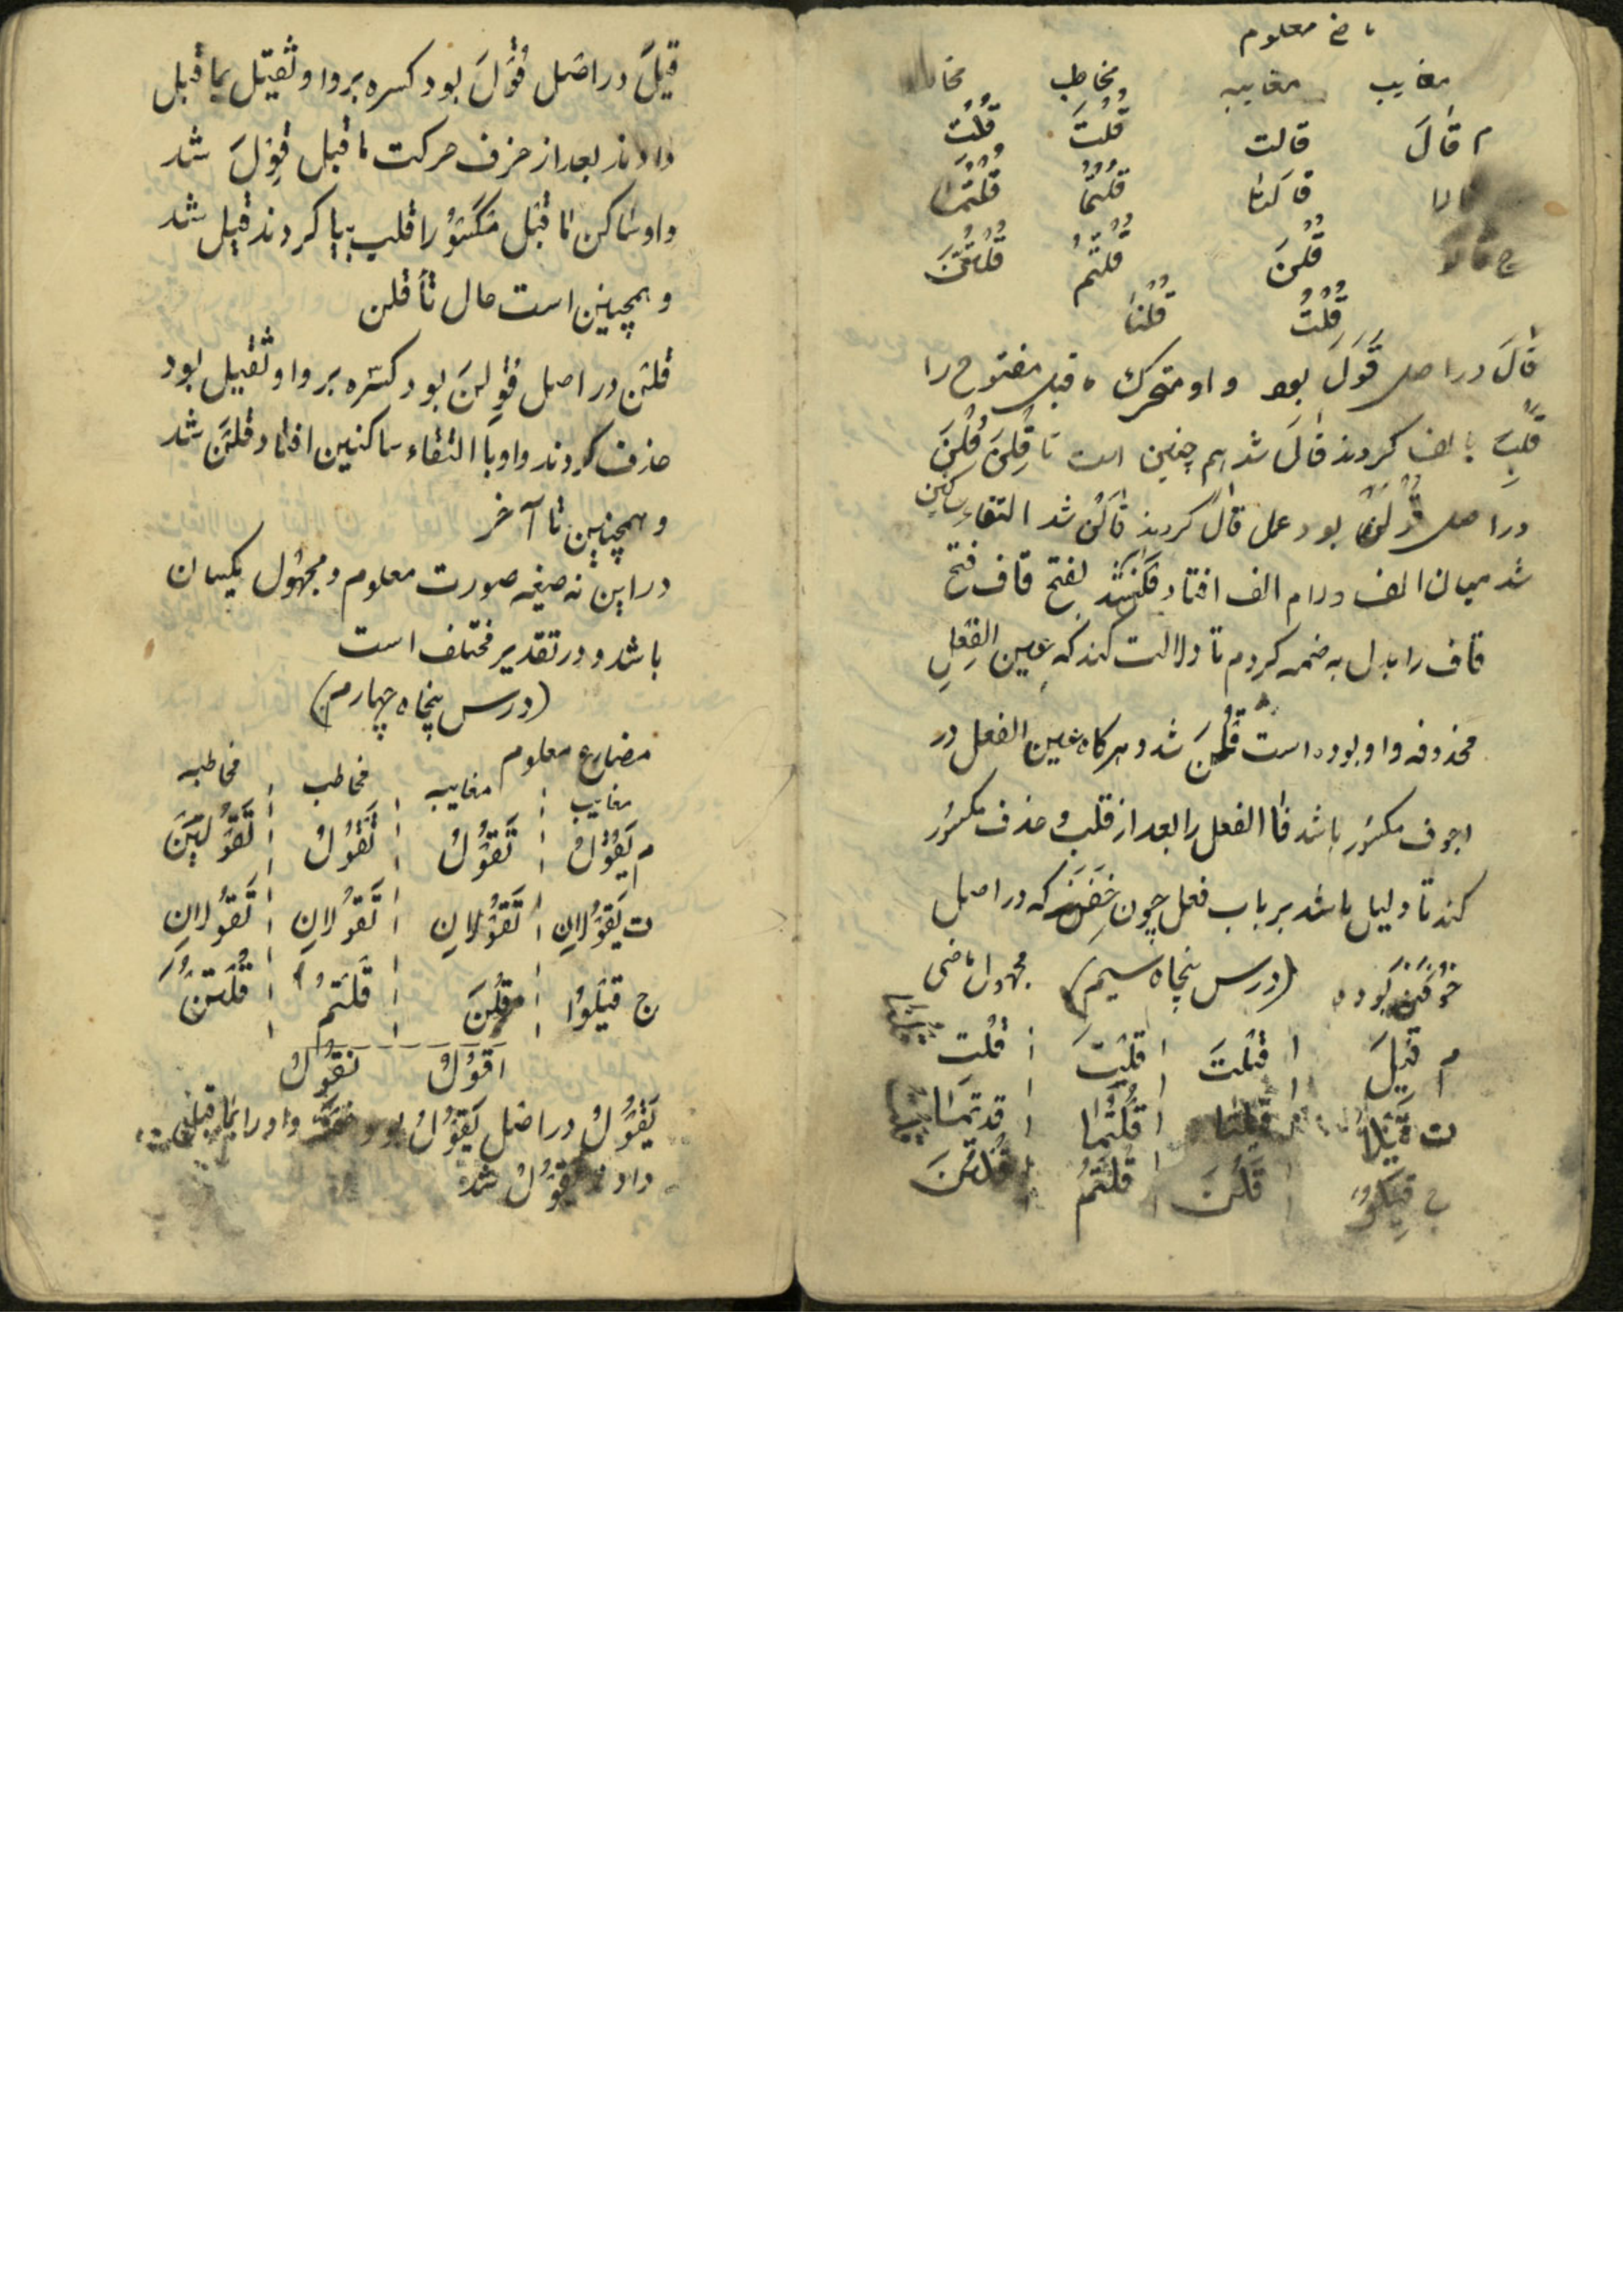 ماضی معلوم
مغایب مغایبه مخاطب
م قَالَ قالت قُلْتَ قُلْتِ
قالتا قُلْتُمَا قُلْتُمَا
ج قُلْنَ قُلْتُمْ قُلْتُنَّ
قُلْتُ قُلْنَا
قَالَ در اصل قَوَلَ بود واو متحرک ماقبل مفتوح را
قلب بالف کردند قَالَ شد هم چنین است تا قُلْنَ قُلْنَ
در اصل بود عمل قال کردند قَالْنَ شد التقاء ساکنین
شد میان الف و لام الف افتاد شد بفتح قاف فتح
قاف را بدل به ضمه کردم تا دلالت کند که عین الفِعلِ
محذوفه واو بوده است قُلْنَ شد و هرکاه عین الفعل در
اجوف مکسُور باشد فا الفعل را بعد از قلب و حذف مکسُور
کند تا دلیل باشد بر باب فعل چون خِفْنَ که در اصل
خَوِفْنَ بوده (درس پنجاه سیم) مجهول ماضی
م قِیلَ قیلت قلت قلتِ
ت قیلا قیلتا قُلتُما
ج قیلوا قُلْنَ قُلتُمْ قُلتُنَّ
قیلَ در اصَل قُوِلَ بود کسره بر واو ثقیل بما قبل
دادند بعد از حزف حرکت ما قبل قِوْلَ شد
واو ساکن ما قبل مکسُور را قلب بیا کردند قیل شد
و همچنین است حال تا قلن
قلنَ در اصل قُوِلنَ بود کسره بر واو ثقیل بود
حذف کردند واو با التقاء ساکنین افتاد قلنَ شد
و همچنین تا آخر
در این نه صیغه صورت معلوم و مجهُول یکسان
باشد و در تقدیر مختلف است
(درس پنجاه چهارم)
مضارع معلوم
مغایب مغایبه مخاطب مخاطبه
م یَقُوْلُ تَقُوْلُ تَقُوْلُ تَقُوْلِیْنَ
ت یَقُوْلانِ تَقُوْلانِ تَقُوْلانِ تَقُوْلانِ
ج قیلوُا قُلْنَ قُلتُمْ قُلتُنَّ
اَقُوْلُ نَقُوْلُ
یَقُوْلُ در اصل یَقْوُلُ بود واو را بما قبل
داد یقُوْلُ شد